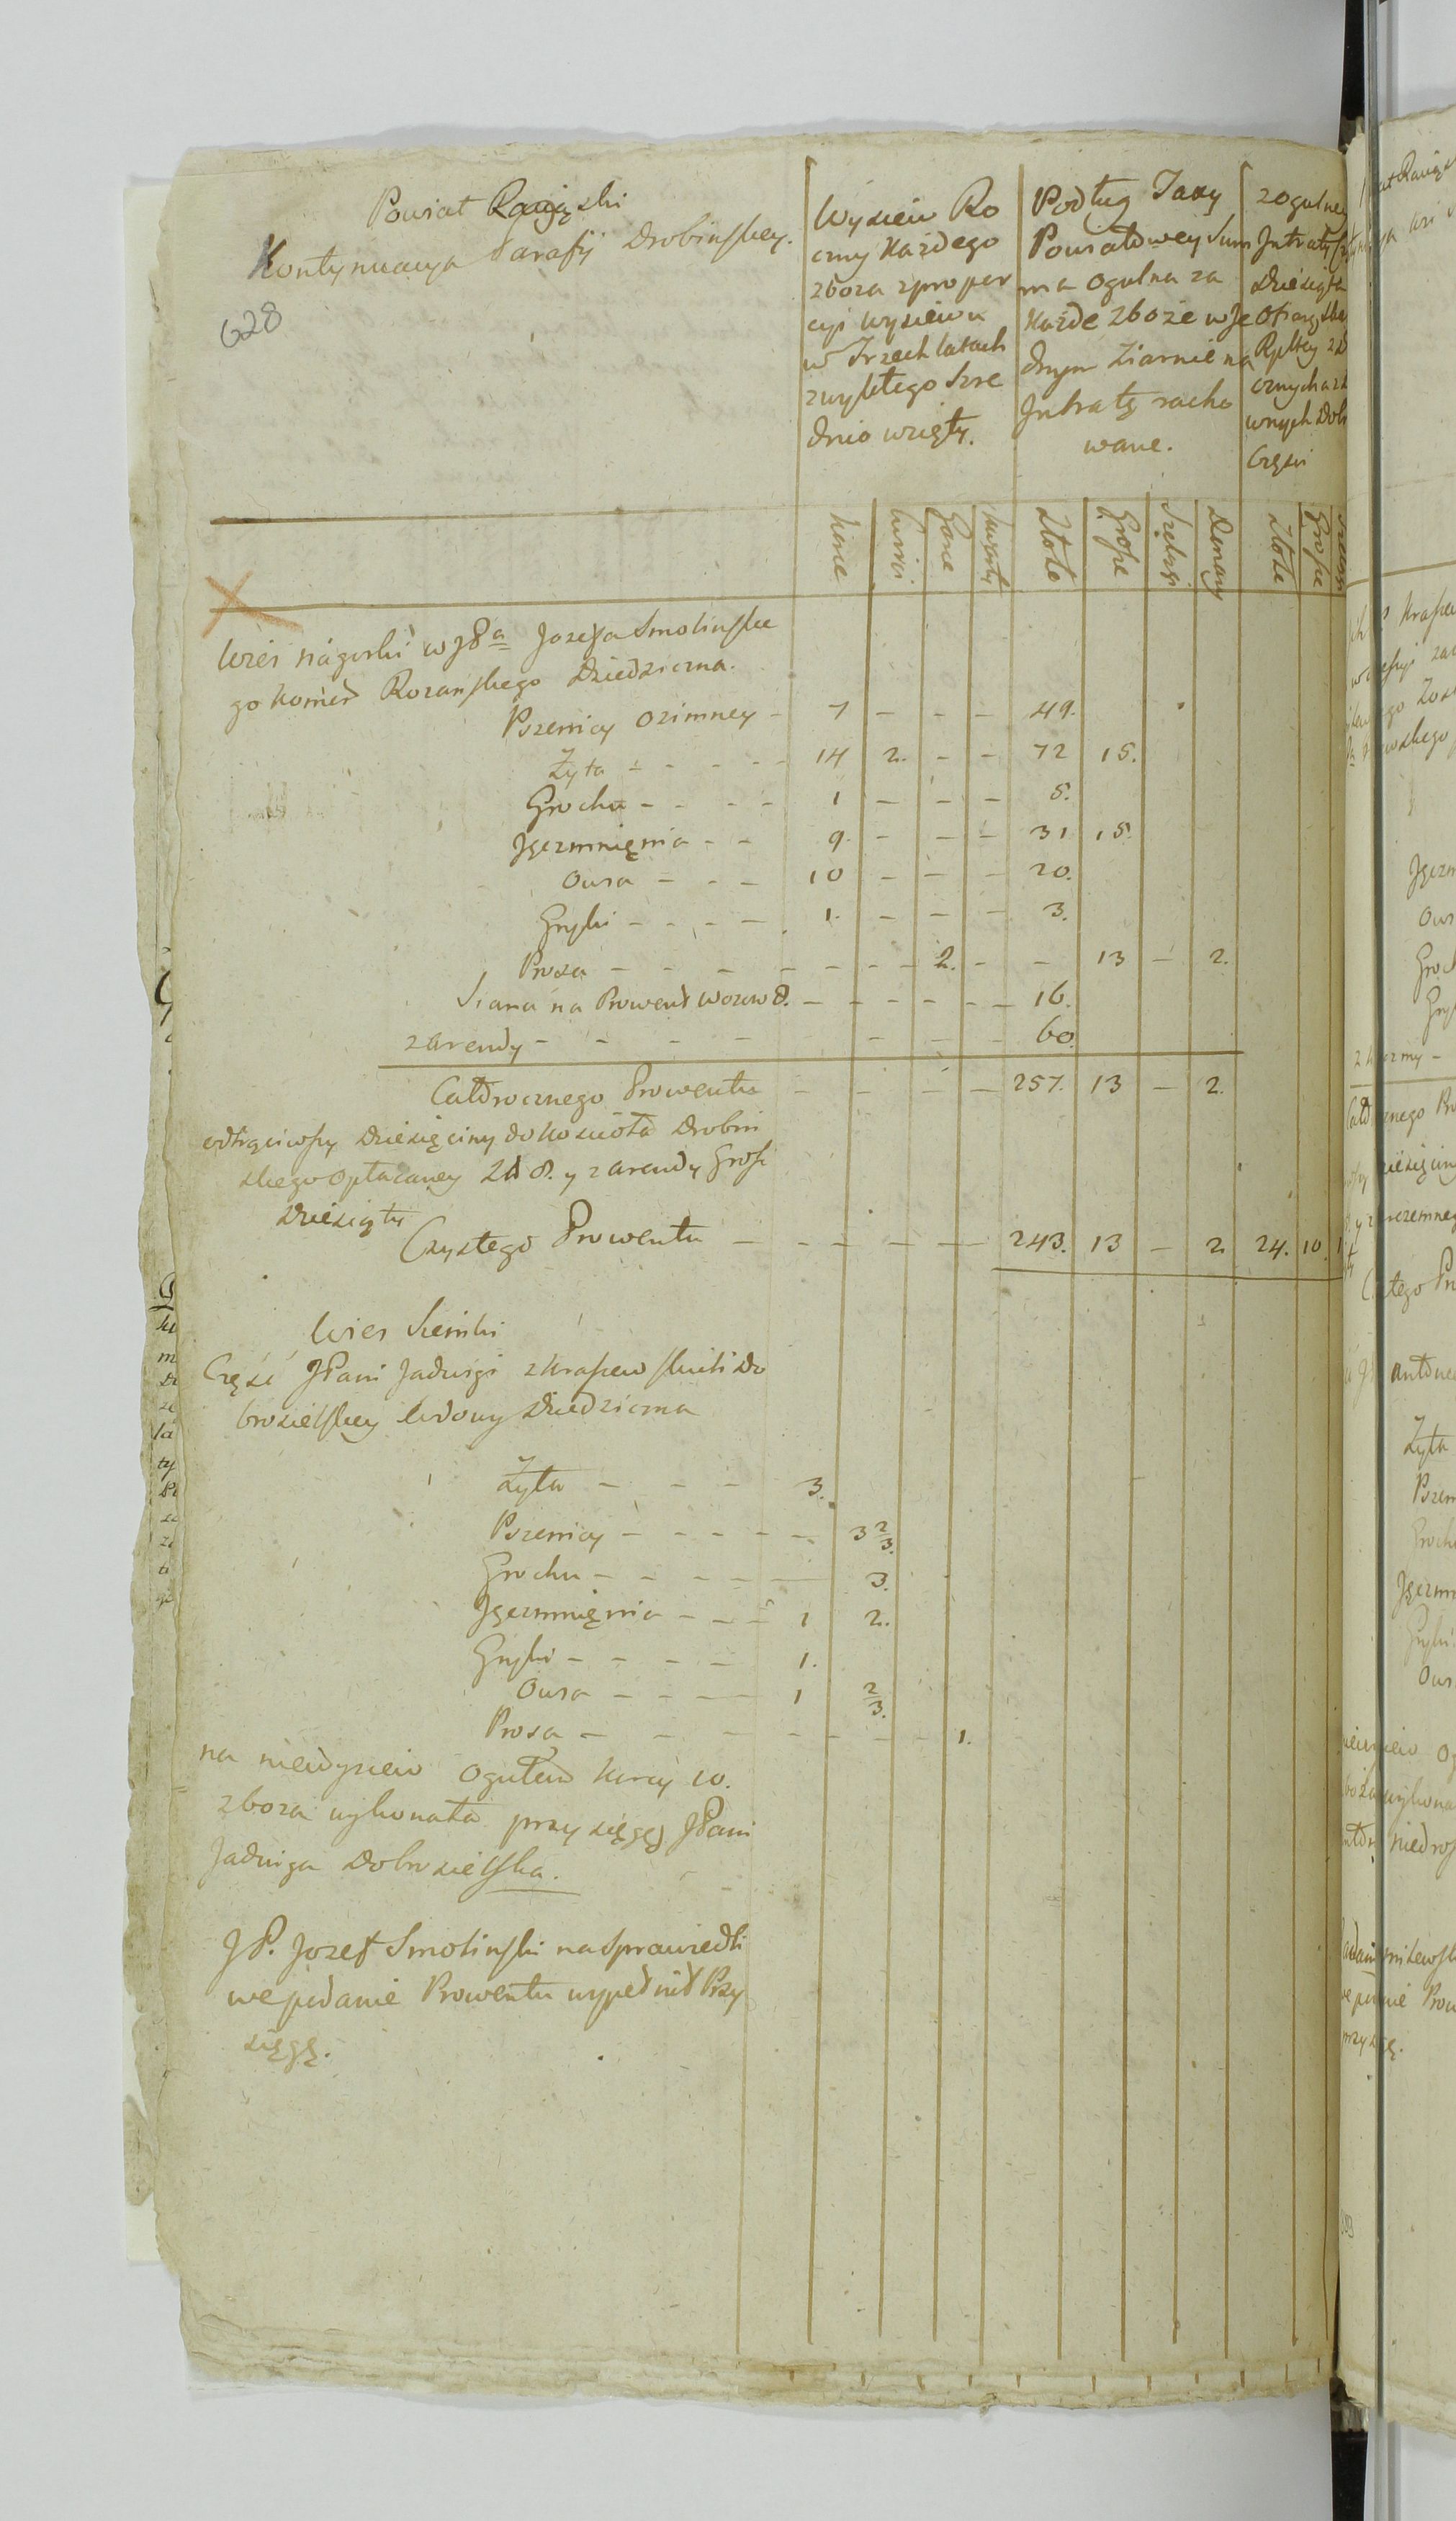 Powiat Raciązki
Kontynuacya Parafij Drobinskiey.
628
Wysiew Ro
czny każdego
zboza zpropor
cyi wysiewu
w Trzech latach
zwykłego szre
dnio wzięty.
Podług Taxy
Powiatowey Sum
ma ogulna za
każde zboże w Je
dnym Ziarnie na
Jntratę racho
wane.
zogulney
Jntraty
dziesiąta
Ofiary
Rpltey
cznych
wnych Dob
Częsci
Korce Cwierci Garce Kwarty Złote Grosze Szelągi Denary Złote Grosze Szelągi
Wieś niagorki w JPa Jozefa Smolinskie
go Komor Rozanskiego Dziedziczna.
Pszenicy ozimney - 7 - - - 49.
Żyta - - - - - 14 2. - - 72 15.
Grochu - - - - 1 - - - 5.
Jęczmnięnia - - 9. - - - 31 15.
Owsa - - - 10 - - - 20.
Gryki - - - - 1. - - - 3.
Prosa - - - - - - - 2. - - 13 - 2.
Siana na Prowent wozow 8. - - - - - - 16.
z Arendy - - - - - - - 60.
Całorocznego Prowentu - - - - 257. 13 - 2.
odtrąciwszy Dziesięciny do Kościoła Drobin
skiego opłacaney Zł 8. y z arendy Grosz
dziesiąty
Czystego Prowentu - - - - - 243. 13 - 2. 24. 10. 1
Wies Siemki
Część JPani Jadwigi z Kraszewskich Do
brosielskiey Wdowy Dziedziczna
Żyta - - - 3.
Pszenicy - - - - - 3 2/3.
Grochu - - - - - 3.
Jęczmnięnia - - - 1 2.
Gryki - - - - 1.
Owsa - - - 1 2/3.
Prosa - - - - - - - 1.
na niewysiew ogułem korcy 10.
zboza wykonała przysięgę JPani
Jadwiga Dobrosielska.
JP. Jozef Smolinski na sprawiedli
we podanie Prowentu wypełnił Przy
sięgę.